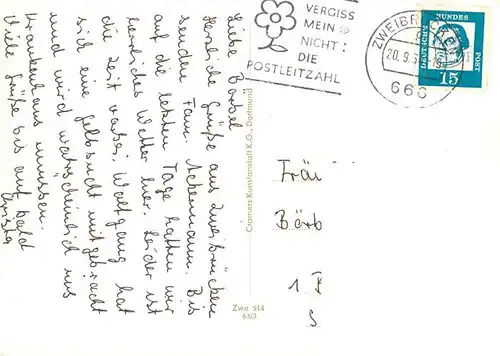 VERGISS
MEIN
NICHT:
DIE
POSTLEITZAHL
ZWEIBRÜCKEN
20.9.6
666
DEUTSCHE BUNDESPOST
15
Liebe Bärbel
Herzliche Grüße aus Zweibrücken
senden Fam. Bis
auf die letzten Tage hatten wir
herrliches Wetter hier. Leider ist
die Zeit vorbei. Wolfgang hat
sich eine Gelbsucht mitgebracht
und wird wahrscheinlich ins
Krankenhaus müssen.
Viele Grüße bis auf bald
Christa
Cramers Kunstanstalt K.G., Dortmund
Zwe 514
63/3
Fräu
Bärb
1